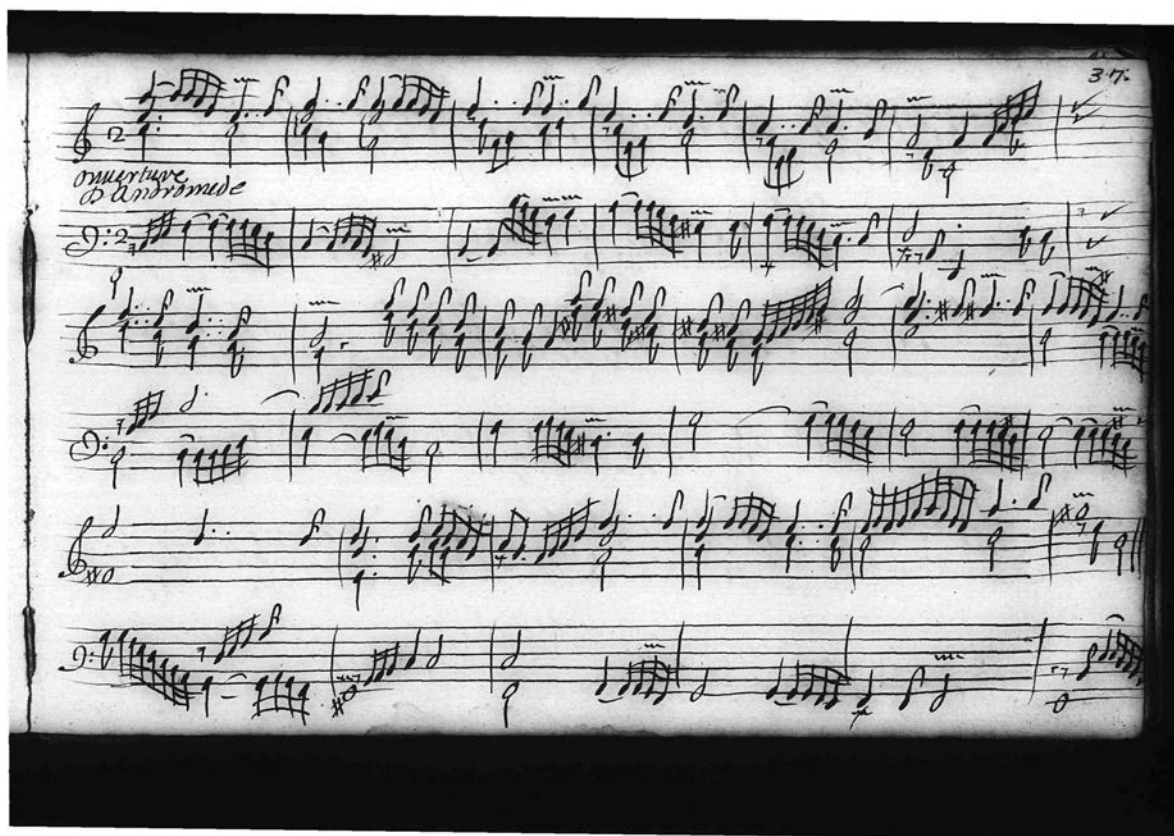 37.
ouverture
D'andromede